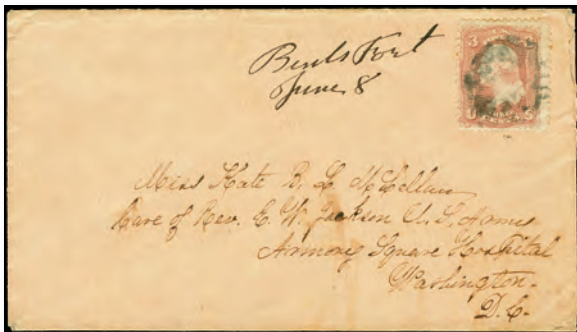 Bents Fort
June 8
3 3
Miss Kate B. L. McLellan
Care of Rev. E. W. Jackson U. S. Army
Armory Square Hospital
Washington.
D.C.